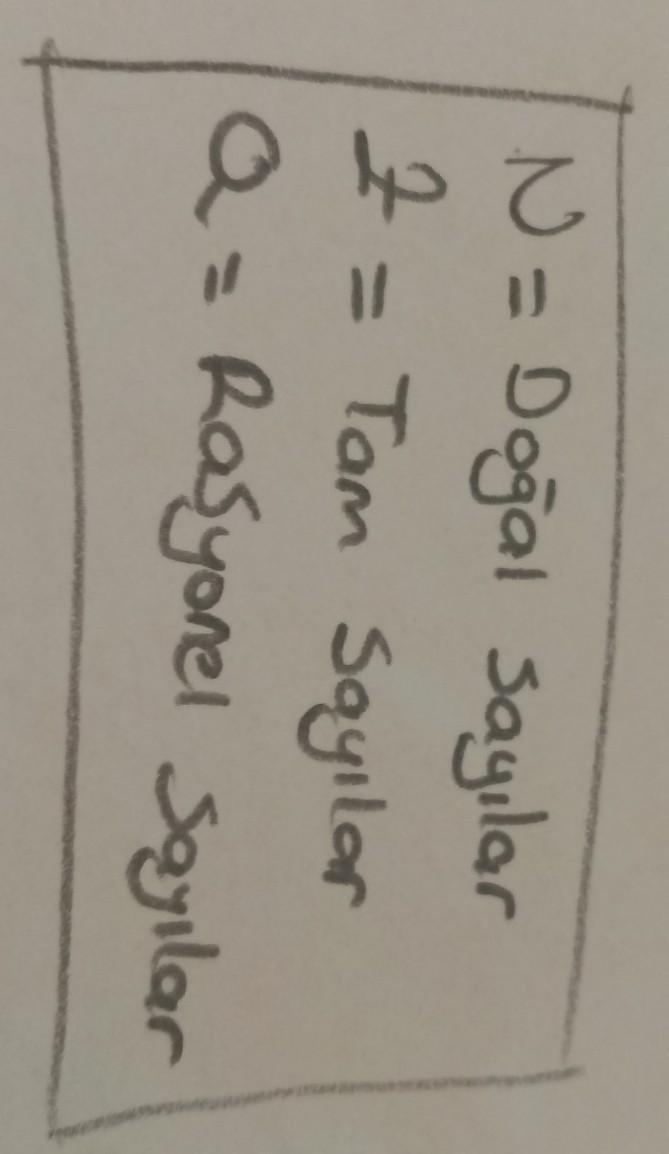 N = Doğal Sayılar
Z = Tam Sayılar
Q = Rasyonel Sayılar